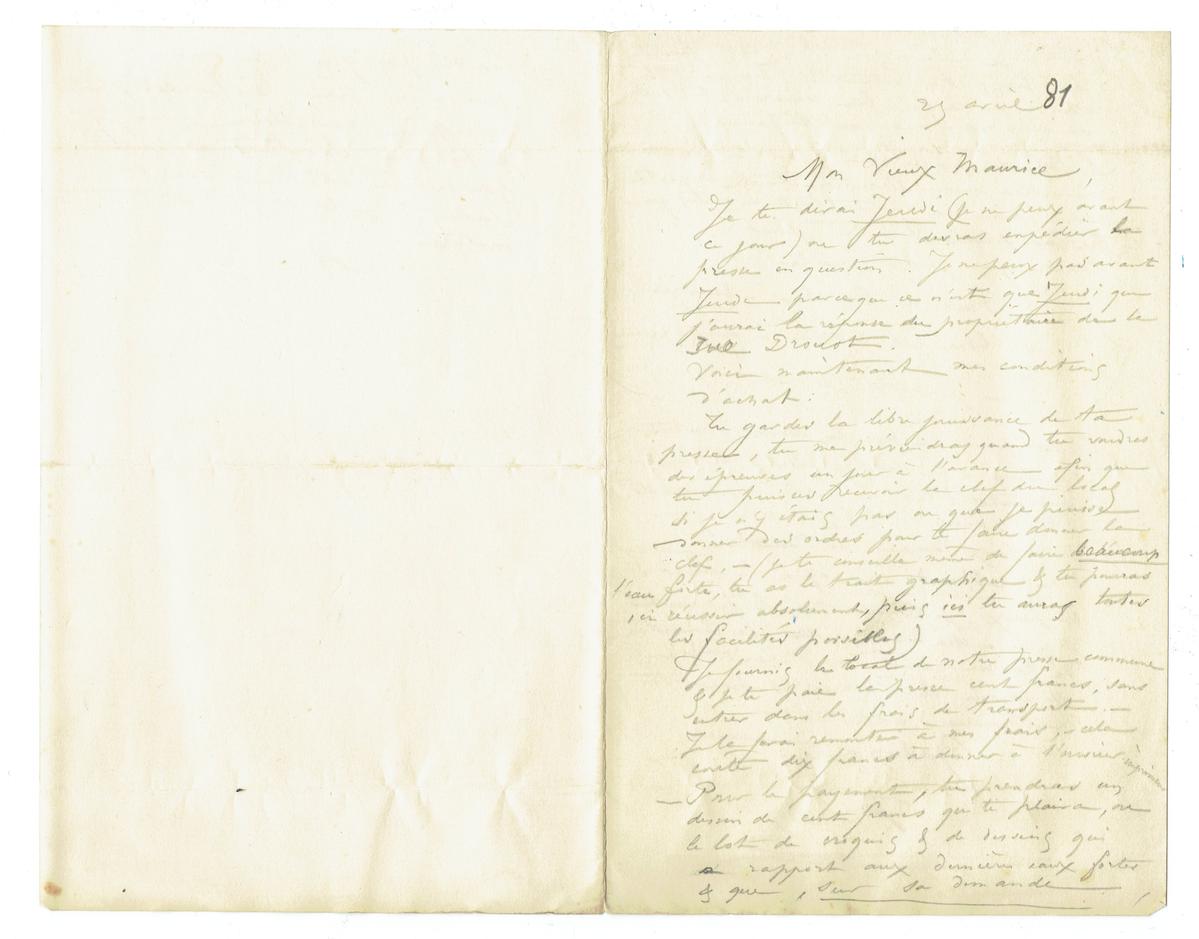 25 avril 81
Mon Vieux Maurice,
Je te dirai Jeudi (je ne peux avant
ce jour) ou tu devras expédier la
presse en question. Je ne peux pas avant
Jeudi parceque ce n'est que Jeudi que
j'aurai la réponse du propriétaire de la
rue Drouot.
Voici maintenant mes conditions
d'achat :
Tu gardes la libre jouissance de ta
presse, tu me préviendras quand tu voudras
des épreuves un jour à l'avance afin que
tu puisses recevoir la clef du local
si je n'y étais pas ou que je puisse
donner des ordres pour te faire donner la
clef. — (je te conseille même de faire beaucoup
l'eau forte, tu as le trait graphique & tu pourras
réussir absolument, puis ici tu auras toutes
les facilités possibles)
Je fournis le local de notre presse commune
& je te paie la presse cent francs, sans
entrer dans les frais de transport. —
Je la ferai remonter à mes frais, — cela
coûte dix francs à donner à l'ouvrier imprimeur
— Pour le payement, tu prendras un
dessin de cent francs qui te plaira, ou
le lot de croquis & de dessins qui
a rapport aux dernières eaux fortes
& que, sur sa demande,